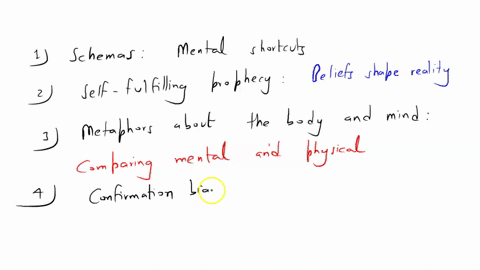 1) Schemas: Mental shortcuts
2) Self-fulfilling prophecy: Beliefs shape reality
3) Metaphors about the body and mind:
Comparing mental and physical
4) Confirmation bia